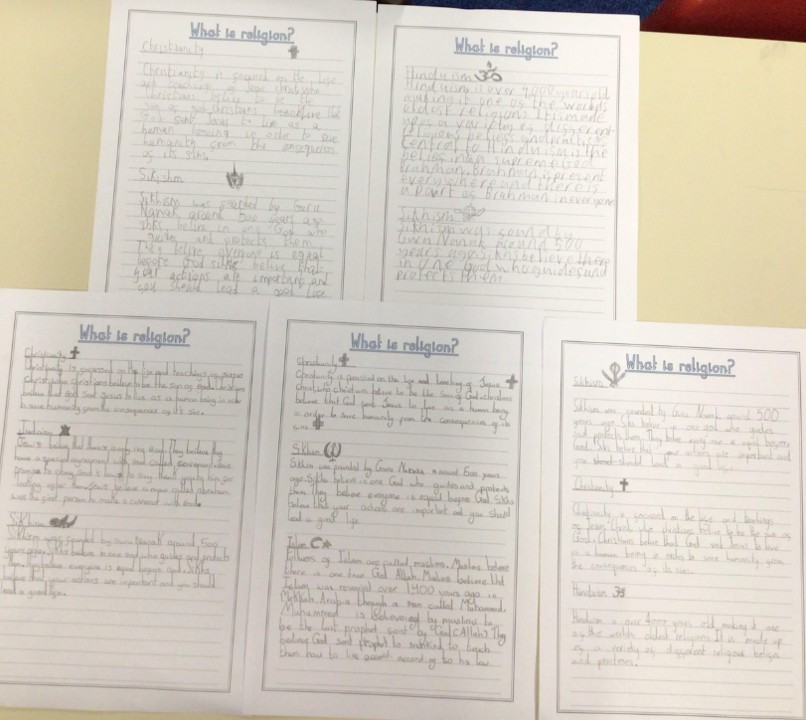 What is religion?
Christianity
Christianity is focused on the life
and teachings of Jesus Christ who
Christians believe to be the
God sent Jesus to live as a
human being in order to save
humanity from the consequences
of its sins.
Sikhism was founded by Guru
Nanak around 500 years ago
believe in one God who
guides and protects them
They believe everyone is equal
before God believe that
your actions are important and
you should lead a good life
What is religion?
Hinduism
Hinduism is over 4000 years old
making it one of the worlds
oldest religions It is made
up of a variety of different
religious beliefs and practices
Central to Hinduism is the
belief in a supreme God
Brahman. Brahman is present
everywhere and there is
a part of Brahman in everyone
Sikhism
Sikhism was found by
Guru Nanak around 500
years ago. believe there
in one God who guides and
protects them
What is religion?
Christianity
Christianity is focused on the life and teachings of Jesus
Christ who christians believe to be the son of God. Christians
believe that God sent Jesus to live as a human being in order
to save humanity from the consequences of its sins.
Judaism
have a special agreement with God called
was the first person to make a covenant with
Sikhism
Sikhism was founded by Guru Nanak around 500
years ago. Sikhs believe in one God who guides and protects
them. They believe everyone is equal before God. Sikhs
believe that your actions are important and you should
lead a good life.
What is religion?
Christianity
Christianity is on the life and teaching of Jesus
christians believe to be the Son of God. christians
believe that God sent Jesus to live as a human being
in order to save humanity from the consequences of its
sins.
Sikhism was founded by Guru Nanak around 500 years
ago. Sikhs believe in one God who guides and protects
them They believe everyone is equal before God. Sikhs
believe that your actions are important and you should
lead a good life
Islam
of Islam are called muslims. Muslims believe
there is one true God Allah. Muslims believe that
Islam was revealed over 1400 years ago in
Arabia through a man called Muhammad.
Muhammad is by muslims to
be the last prophet sent by God (Allah) They
believe God sent prophets to mankind to teach
them how to live according to his law
What is religion?
Sikhism
Sikhism was founded by Guru Nanak around 500
years ago. Sikhs believe in one god who guides
and protects them. They believe everyone is equal before
God. Sikhs believe that your actions are important and
you should lead a good life.
Christianity
Christianity is focused on the life and teachings
of Jesus Christ who christians believe to be the son of
God. Christians believe that God sent Jesus to live
as a human being in order to save humanity from
the consequences of its sins.
Hinduism
Hinduism is over 4000 years old making it one
of the worlds oldest religions. It is made up
of a variety of different religious beliefs
and practices.